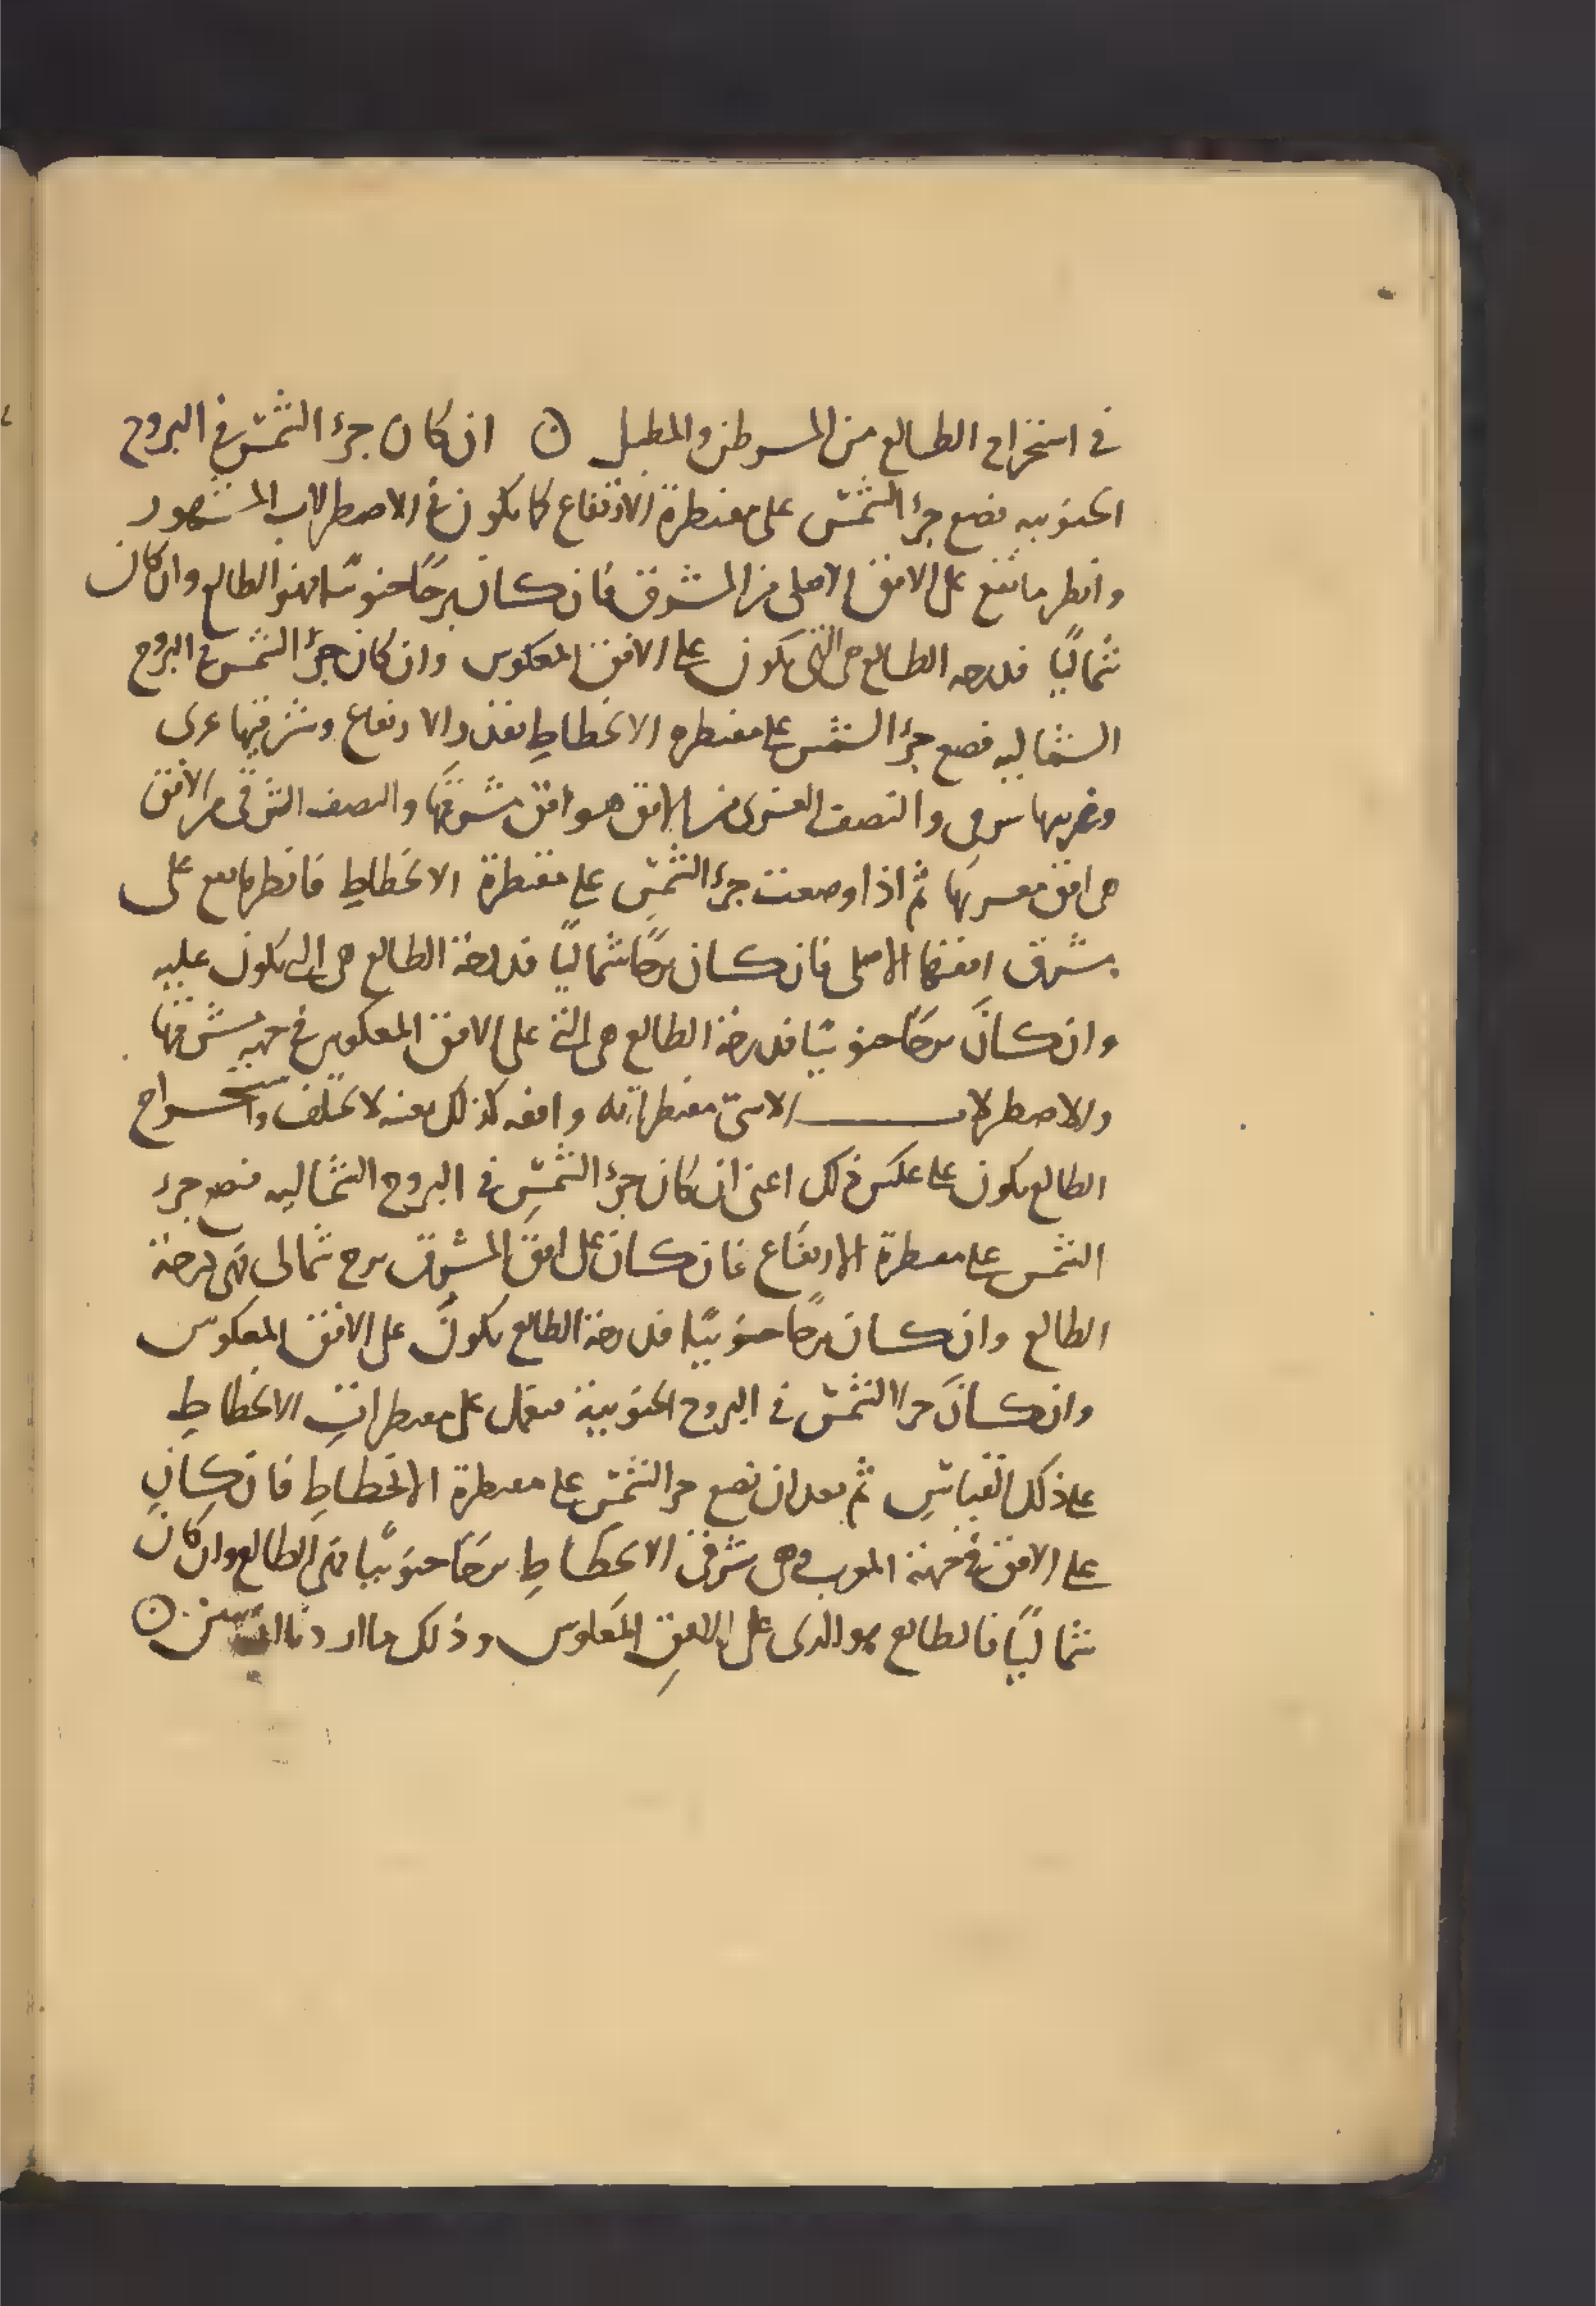 في استخراج الطالع من المسرطن والمطبل ن ان كان جزء الشمس في البروج
الجنوبيه فضع جزء الشمس على مقنطرة الارتفاع كما يكون في الاصطرلاب المشهور
وانظر ما يقع على الافق الاصلى من المشرق فان كان برجًا جنوبيًا فهو الطالع وان كان
شماليًا فدرجه الطالع هى التى يكون على الافق المعكوس وان كان جزء الشمس في البروج
الشماليه فضع جزء الشمس على مقنطره الانحطاط بقدر الارتفاع وشرقيها غربى
وغربيها شرقى والنصف الغربى من الافق هو افق مشرقها والنصف الشرقى من الافق
هى افق مغربها ثم اذا وضعت جزء الشمس على مقنطرة الانحطاط فانظر ما يقع على
مشرق افقها الاصلى فان كان برجًا شماليًا فدرجة الطالع هى التى يكون عليه
وان كان برجًا جنوبيًا فدرجة الطالع هى التى على الافق المعكوس في جهة مشرقها
والاصطرلاب الاسى مقنطراته وافقه كذلك بعينه لا يختلف واستخراج
الطالع يكون على عكس ذلك اعنى ان كان جزء الشمس في البروج الشماليه فتضع جزء
الشمس على مقنطرة الارتفاع فان كان على افق المشرق برج شمالى فهى درجة
الطالع وان كان برجًا جنوبيًا فدرجة الطالع يكون على الافق المعكوس
وان كان جزء الشمس في البروج الجنوبية فتعمل على مقنطرات الانحطاط
على ذلك القياس ثم بعد ان تضع جزء الشمس على مقنطرة الانحطاط فان كان
على الافق في جهة المغرب وهى شرقى الانحطاط برجًا جنوبيًا فهى الطالع وان كان
شماليًا فالطالع هو الذى على الافق المعكوس وذلك ما اردنا ان نبين ن